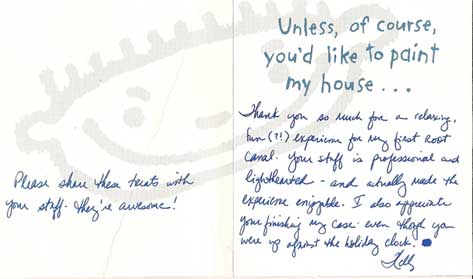 Please share these treats with
your staff - they're awesome!
Unless, of course,
you'd like to paint
my house...
Thank you so much for a relaxing,
fun (?!) experience for my first root
canal. Your staff is professional and
lighthearted - and actually made the
experience enjoyable. I also appreciate
your finishing my case - even though you
were up against the holiday clock!
Kelly